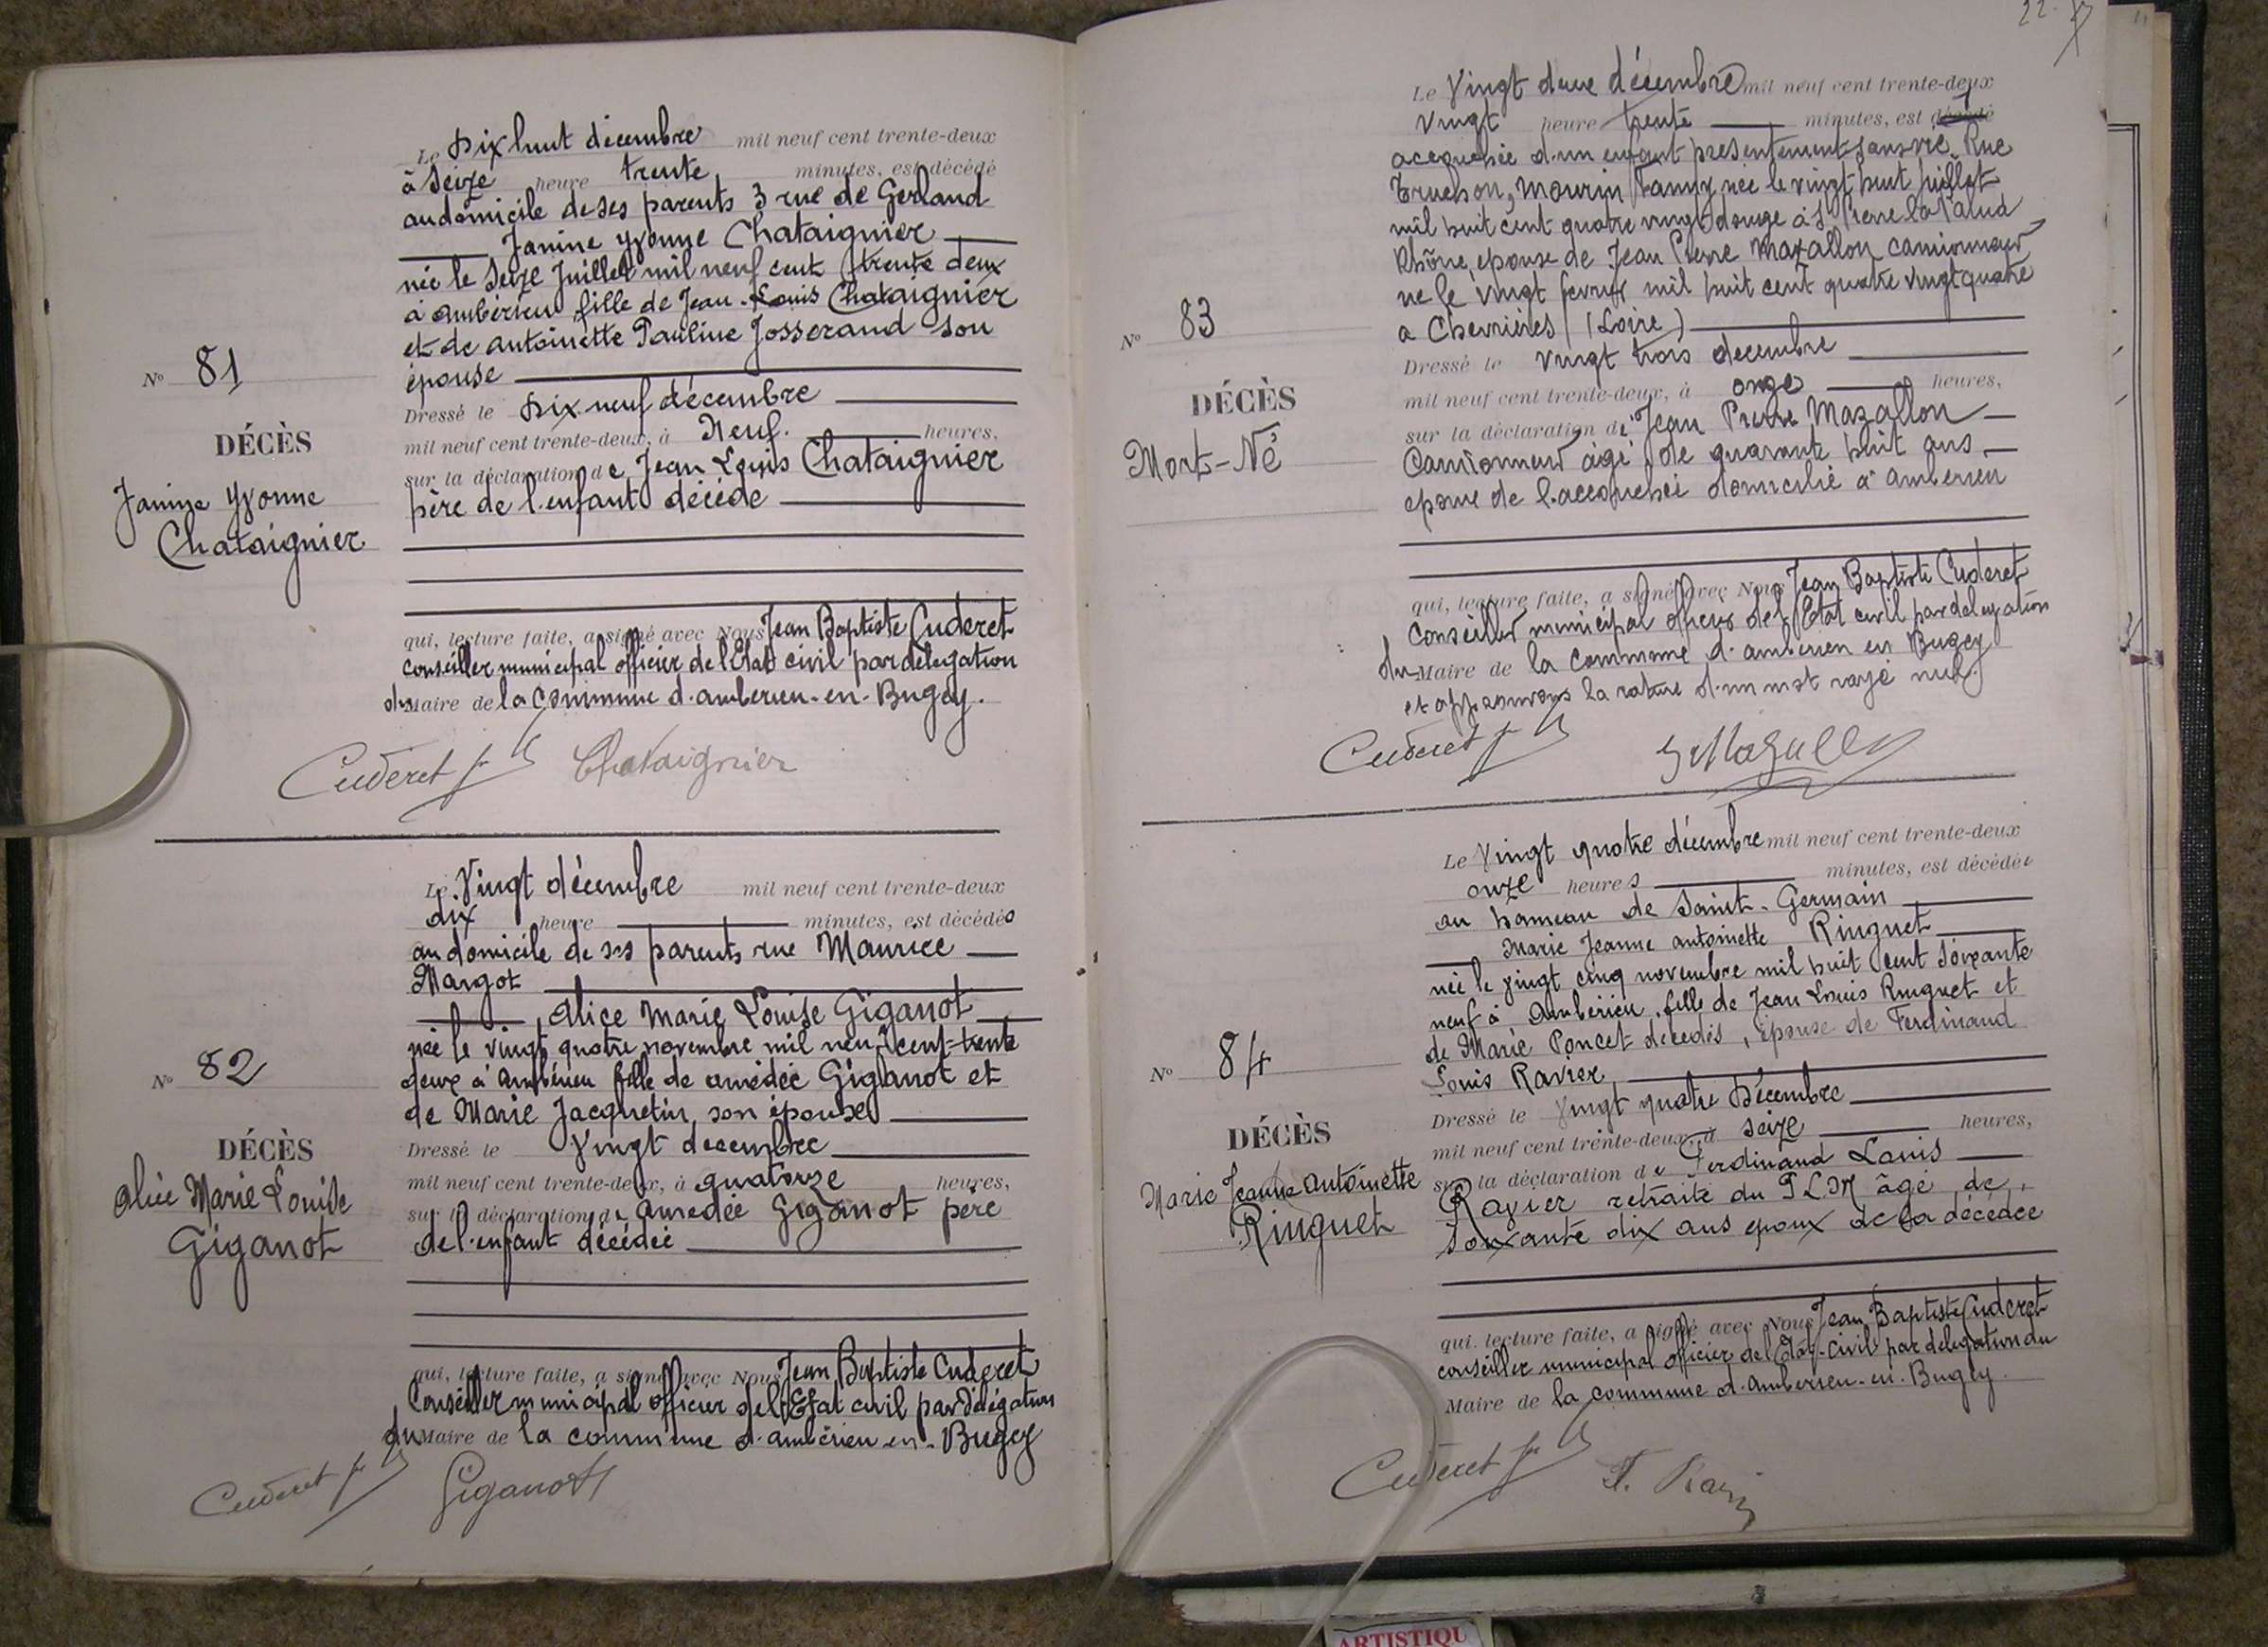 Le Dix huit décembre mil neuf cent trente-deux
à Seize heure trente minutes, est décédé
au domicile de ses parents 3 rue de Gerland
Janine Yvonne Chataignier
née le Seize Juillet mil neuf cent trente deux
à Ambérieu fille de Jean-Louis Chataignier
et de antoinette Pauline Josserand son
épouse
Dressé le Dix neuf décembre
mil neuf cent trente-deux, à Neuf. heures,
sur la déclaration de Jean Louis Chataignier
père de l'enfant décédé
qui, lecture faite, a signé avec Nous Jean Baptiste Cuderet
conseiller municipal officier de l'Etat civil par délégation
du Maire de la commune d'amberieu-en-Bugey.
Nº 81
DÉCÈS
Janine Yvonne
Chataignier
Cuderet Chataignier
Le Vingt décembre mil neuf cent trente-deux
dix heure minutes, est décédée
au domicile de ses parents rue Maurice
Margot
Alice Marie Louise Giganot
née le vingt quatre novembre mil neuf cent trente
deux à Ambérieu fille de amédée Giganot et
de Marie Jacquetin son épouse
Dressé le Vingt decembre
mil neuf cent trente-deux, à quatorze heures,
sur la déclaration de Amedée Giganot père
de l'enfant décédée
qui, lecture faite, a signé avec Nous Jean Baptiste Cuderet
Conseiller municipal officier de l'Etat civil par délégation
du Maire de la commune d'ambérieu-en-Bugey
Nº 82
DÉCÈS
Alice Marie Louise
Giganot
Cuderet Giganot
22.
Le Vingt deux décembre mil neuf cent trente-deux
vingt heure trente minutes, est décédé
accouchée d'un enfant presentement sans vie Rue
Truchon, Mourin Fanny née le vingt huit juillet
mil huit cent quatre vingt douze à St Pierre la Palud
Rhône, epouse de Jean Pierre Mazallon camionneur
ne le vingt fevrier mil huit cent quatre vingt quatre
a Chevrières (Loire)
Dressé le vingt trois decembre
mil neuf cent trente-deux, à onze heures,
sur la déclaration de Jean Pierre Mazallon
Camionneur âgé de quarante huit ans
epoux de l'accouchée domicilié à amberieu
qui, lecture faite, a signé avec Nous Jean Baptiste Cuderet
Conseiller municipal officier de l'Etat civil par delegation
du Maire de la commune d'amberieu en Bugey
et approuvons la rature d'un mot rayé nul.
Nº 83
DÉCÈS
Mort-Né
Cuderet
Le Vingt quatre décembre mil neuf cent trente-deux
onze heures minutes, est décédée
au hameau de Saint-Germain
Marie Jeanne antoinette Ringuet
née le vingt cinq novembre mil huit cent soixante
neuf à Ambérieu, fille de Jean Louis Ringuet et
de Marie Poncet décédés, épouse de Ferdinand
Louis Ravier
Dressé le vingt quatre Décembre
mil neuf cent trente-deux, à seize heures,
sur la déclaration de Ferdinand Louis
Ravier retraité du P.L.M âgé de
soixante dix ans epoux de la décédée
qui, lecture faite, a signé avec Nous Jean Baptiste Cuderet
conseiller municipal officier de l'Etat-Civil par delegation du
Maire de la commune d'amberieu-en-Bugey.
Nº 84
DÉCÈS
Marie Jeanne Antoinette
Ringuet
Cuderet
ARTISTIQU